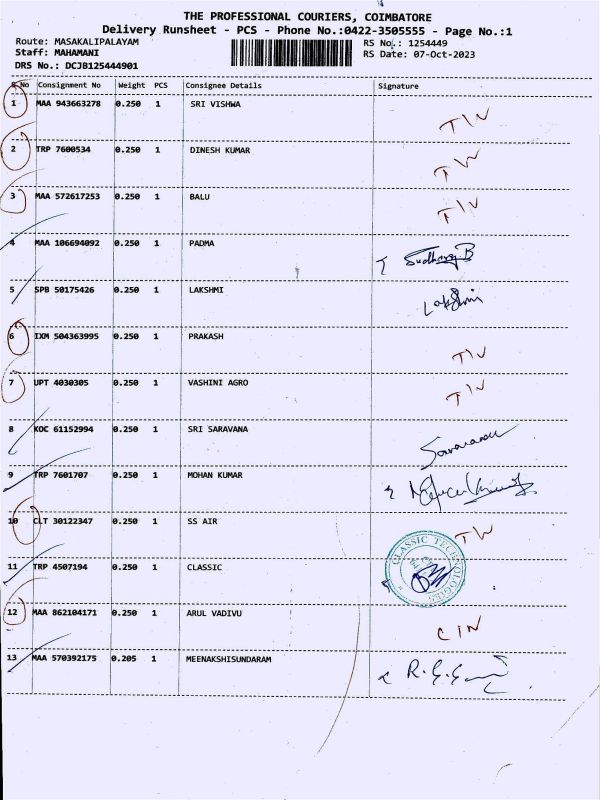 THE PROFESSIONAL COURIERS, COIMBATORE
Delivery Runsheet - PCS - Phone No.:0422-3505555 - Page No.:1
Route: MASAKALIPALAYAM RS No.: 1254449
Staff: MAHAMANI RS Date: 07-Oct-2023
DRS No.: DCJB125444901
S No Consignment No Weight PCS Consignee Details Signature
1 MAA 943663278 0.250 1 SRI VISHWA
TIN
2 TRP 7600534 0.250 1 DINESH KUMAR
TIN
3 MAA 572617253 0.250 1 BALU
TIN
4 MAA 106694092 0.250 1 PADMA
5 SPB 50175426 0.250 1 LAKSHMI
Lakshmi
6 IXM 504363995 0.250 1 PRAKASH
TIN
7 UPT 4030305 0.250 1 VASHINI AGRO
TIN
8 KOC 61152994 0.250 1 SRI SARAVANA
9 TRP 7601707 0.250 1 MOHAN KUMAR
10 CLT 30122347 0.250 1 SS AIR
TIN
11 TRP 4507194 0.250 1 CLASSIC
CLASSIC TECHNOLOGIES
12 MAA 862104171 0.250 1 ARUL VADIVU
CIN
13 MAA 570392175 0.205 1 MEENAKSHISUNDARAM